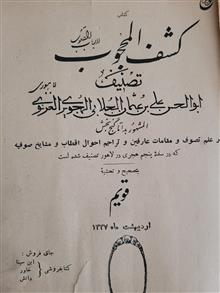 کتاب
کشف المحجوب
لارباب القلوب
تصنیف
ابوالحسن علی بن عثمان الجلابی الهجویری الغزنوی
المشهور بداتا گنج بخش
در علم تصوف و مقامات عارفین و تراجم احوال اقطاب و مشایخ صوفیه
که در سدهٔ پنجم هجری در لاهور تصنیف شده است
بتصحیح و تحشیهٔ
قویم
اردیبهشت ماه ۱۳۳۷
جای فروش:
کتابفروشی
ابن سینا
خاور
دانش